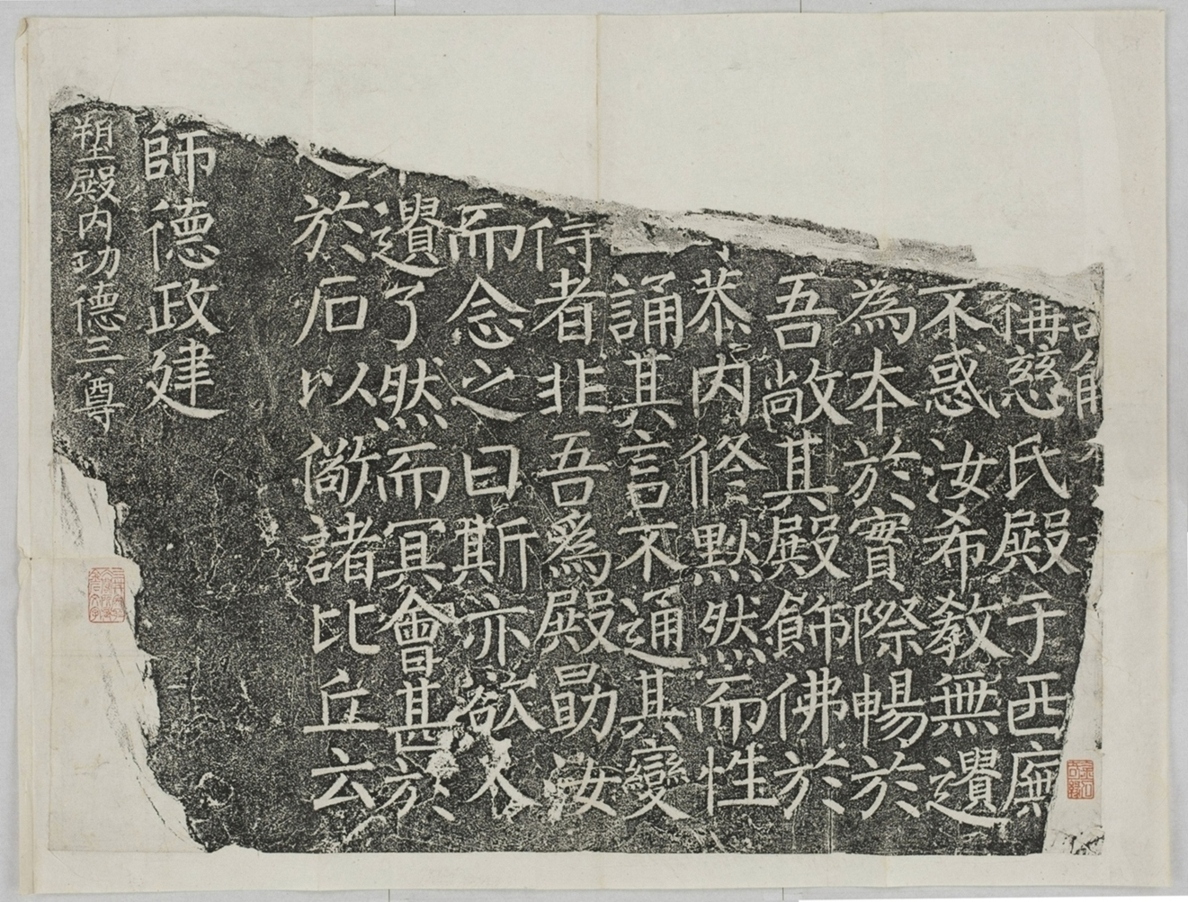 佛慈氏殿于西廡
不惑汝希教無遺
為本於實際暢於
吾敞其殿飾佛於
恭内修默然而性
誦其言不通其變
侍者非吾爲殿勗汝
而念之曰斯亦欲人
遺了然而冥會甚於
於石以喻諸比丘云
師德政建
塑殿内功德三尊